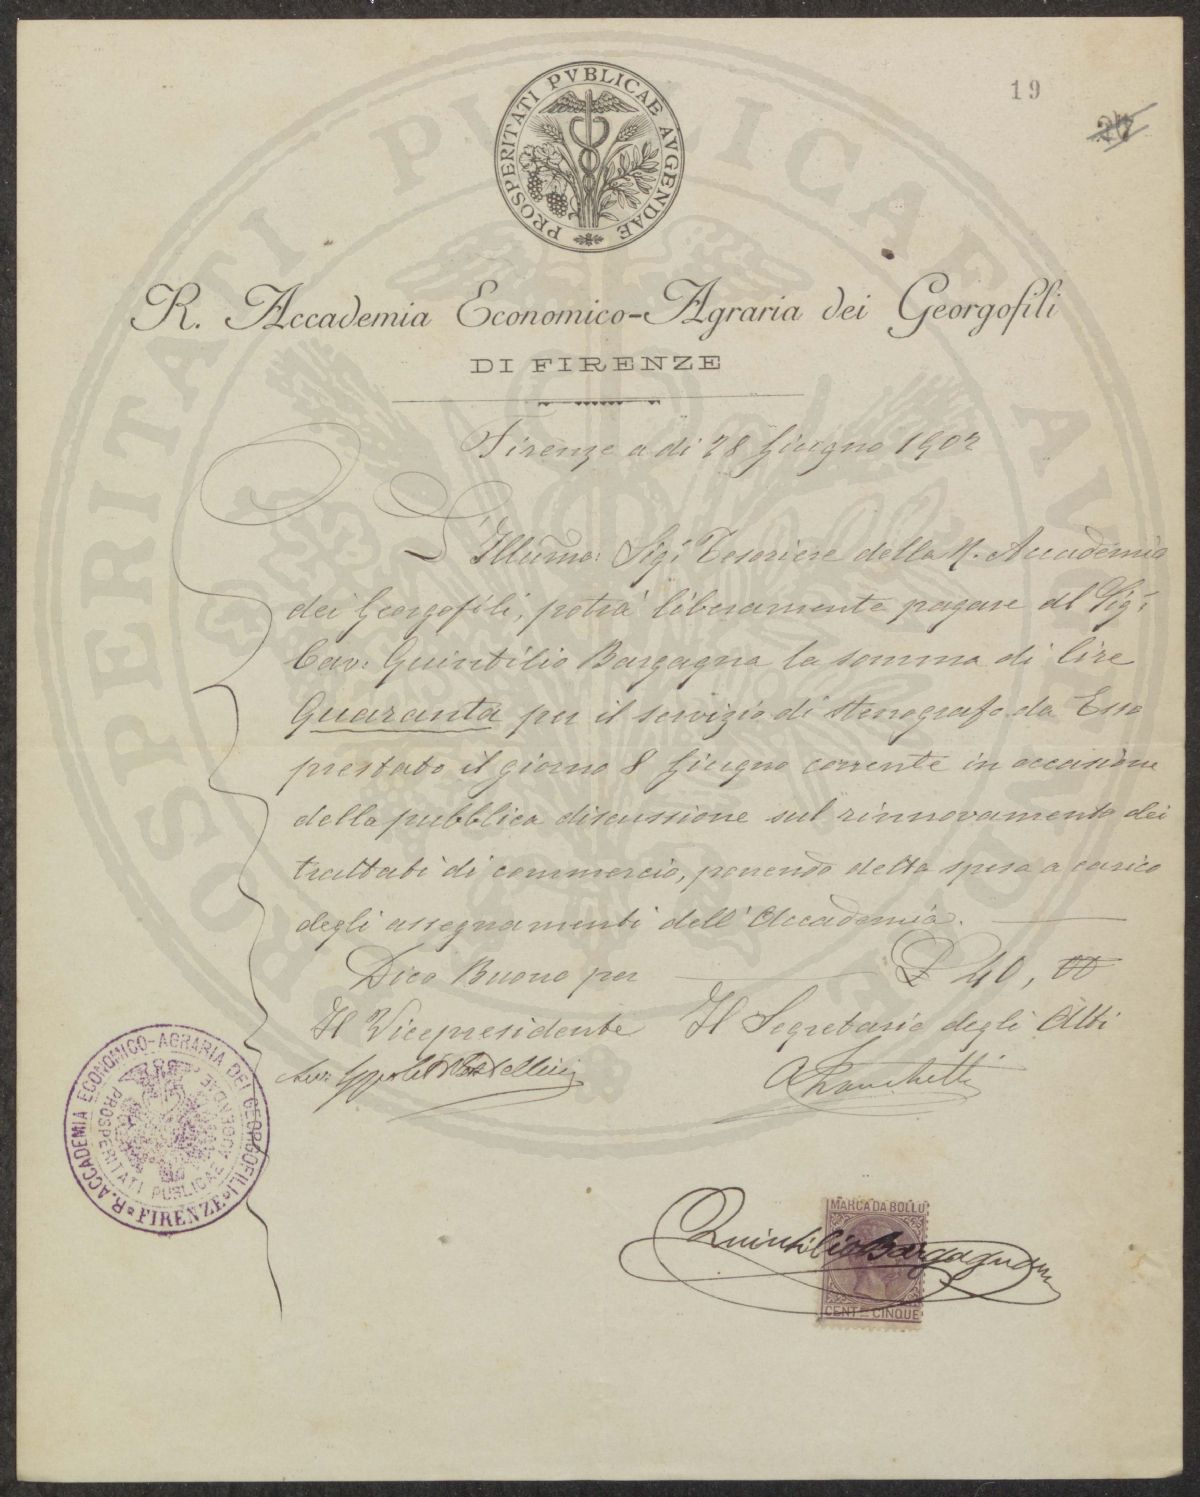 19
27
PROSPERITATI PVBLICAE AVGENDAE
R. Accademia Economico-Agraria dei Georgofili
DI FIRENZE
Firenze a di 28 Giugno 1902
L'Illumo: Sig: Tesoriere della R. Accademia
dei Georgofili, potrà liberamente pagare al Sig:
Cav: Quintilio Bargagna la somma di lire
Quaranta per il servizio di stenografo da Esso
prestato il giorno 8 Giugno corrente in occasione
della pubblica discussione sul rinnovamento dei
trattati di commercio, ponendo detta spesa a carico
degli assegnamenti dell'Accademia.
Dico Buono per £ 40, 00
Il Vicepresidente Il Segretario degli Atti
R. ACCADEMIA ECONOMICO-AGRARIA DEI GEORGOFILI
PROSPERITATI PUBLICAE AUGENDAE
FIRENZE
MARCA DA BOLLO
Quintilio Bargagna
CENT. CINQUE
PROSPERITATI PUBLICAE AUGENDAE